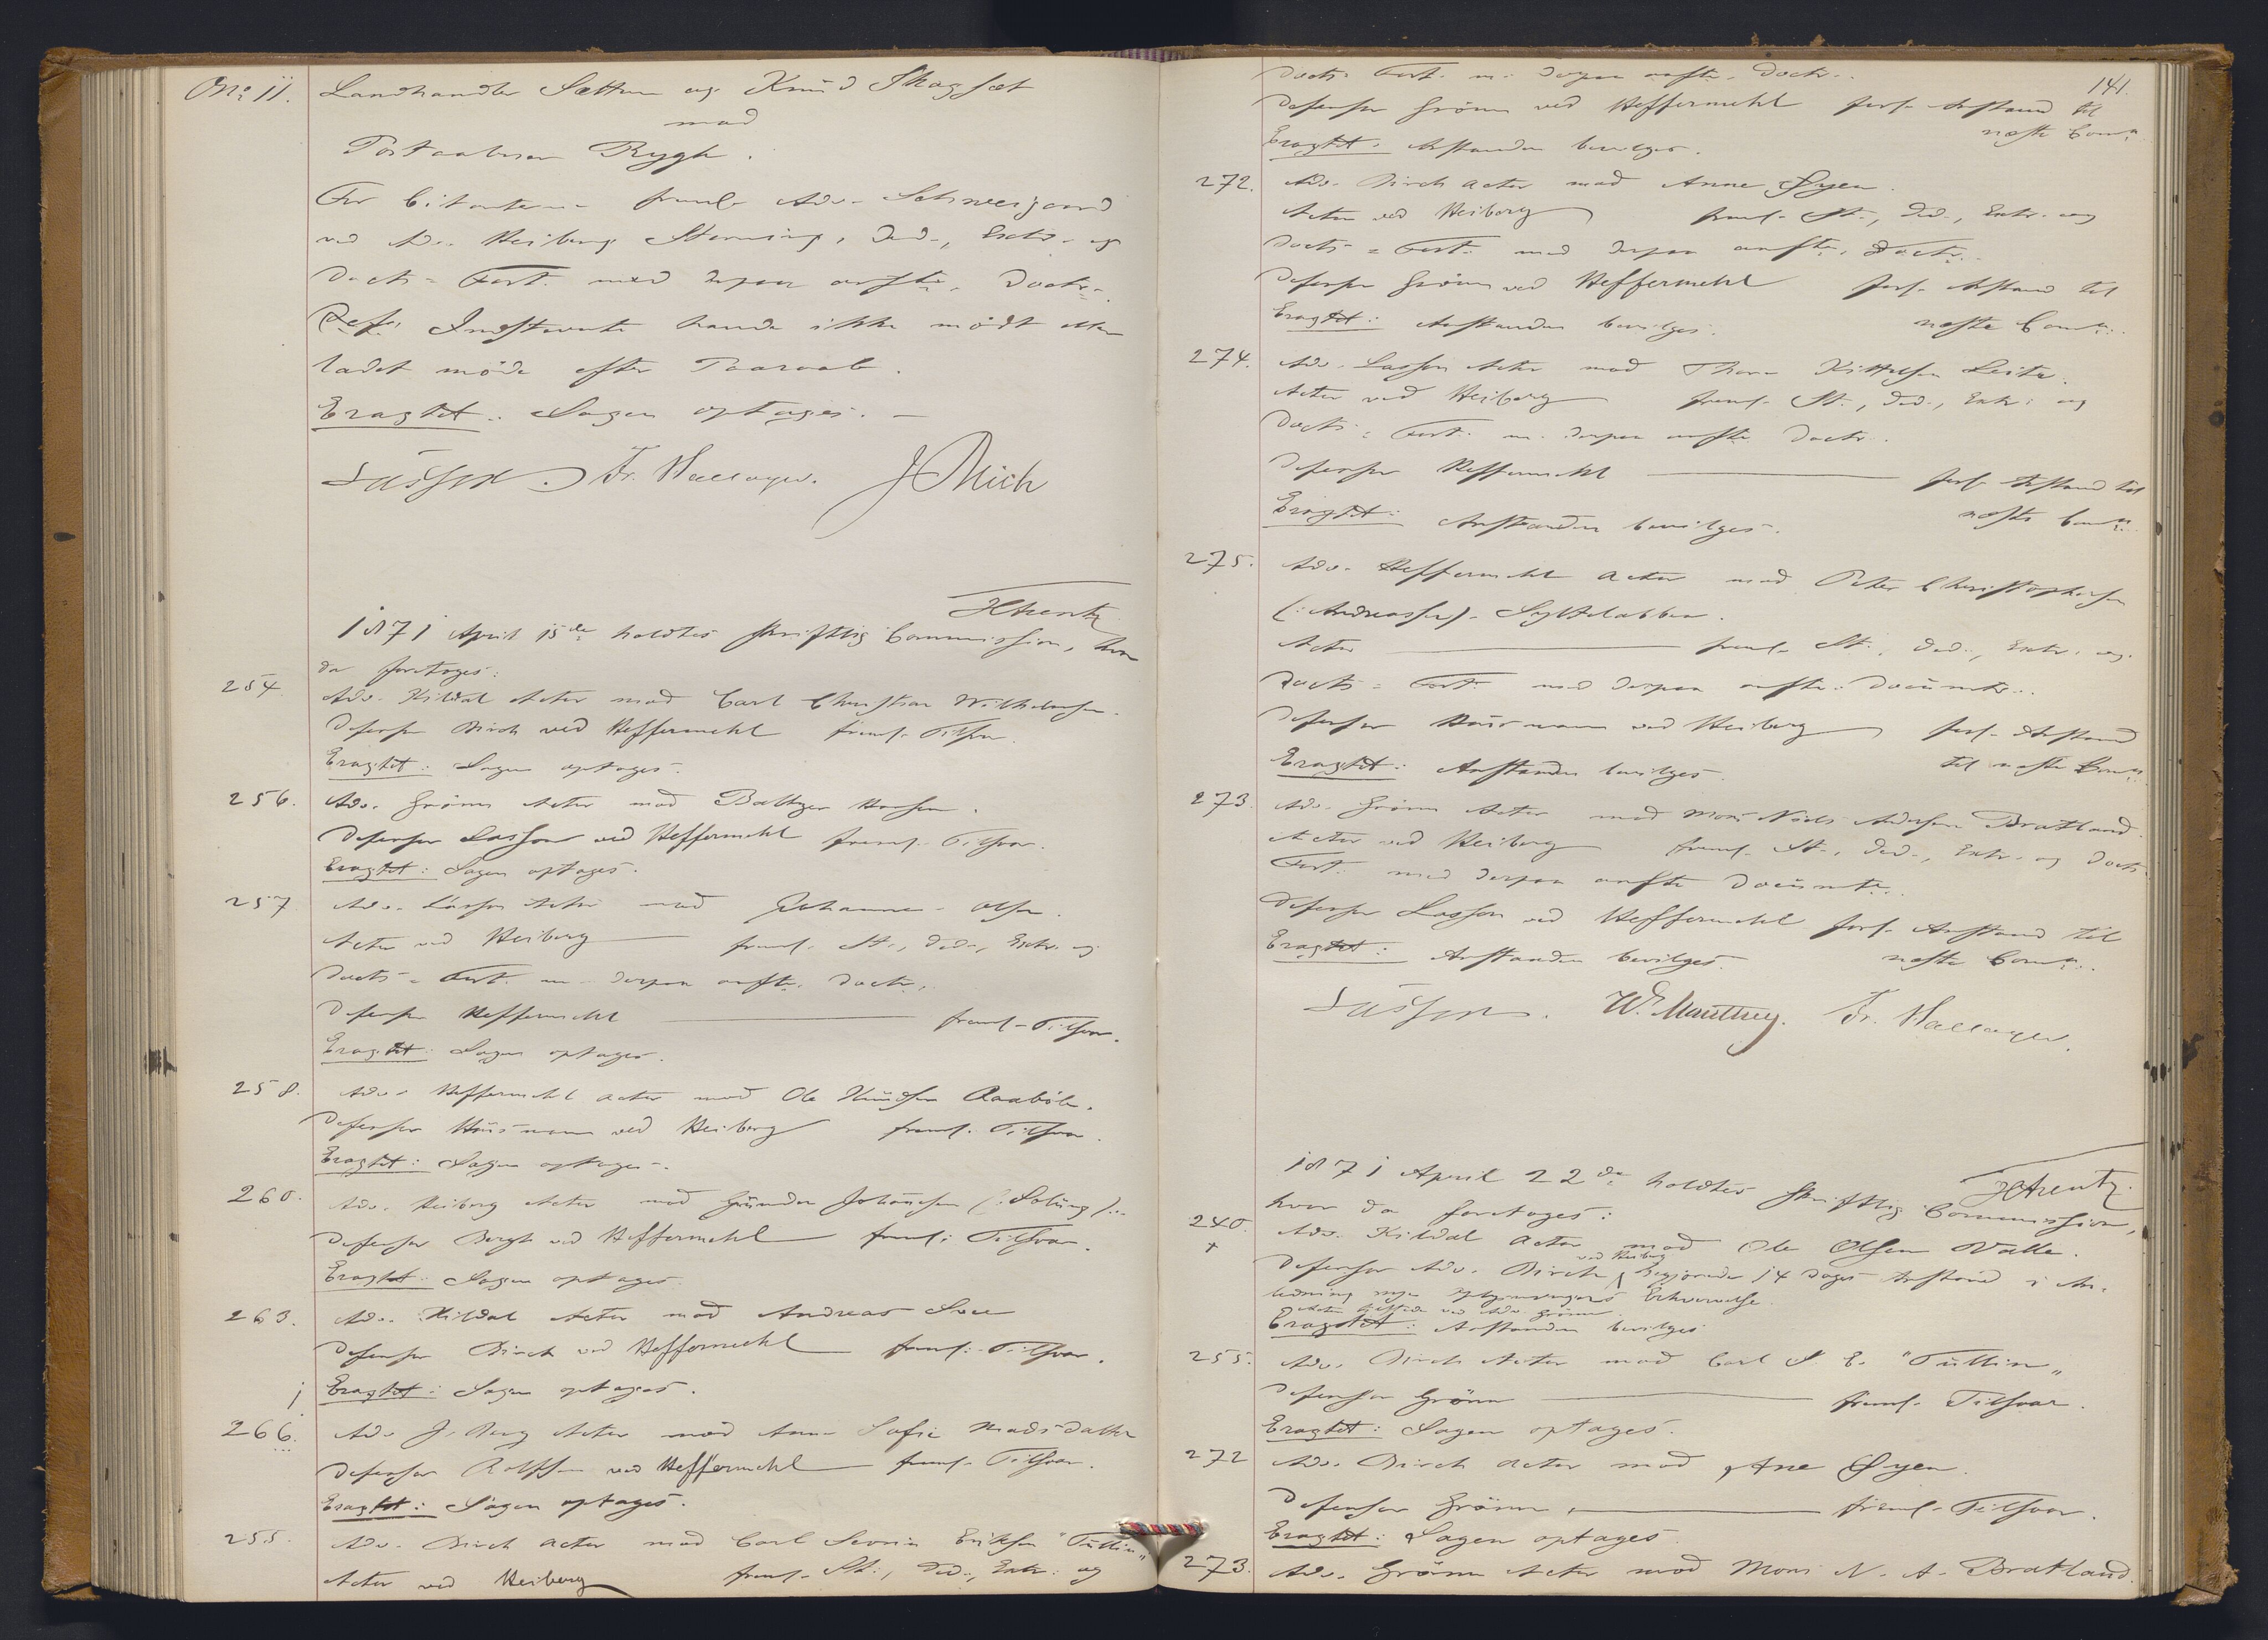 No 11. Landhandler Sættrum og Knud Skagsæt
mod
Postaabner Rygh.
For Citanterne freml. Adv. Schweigaard
ved Adv. Heiberg Stevning, Ded., Extr. og
Docts = Fort. med derpaa anfte. Doctr.
Indstevnte havde ikke mödt eller
ladet möde efter Paaraab.
Eragtet: Sagen optages.
Lasson. Fr. Hallager. J Mich
H Arentz
1871 April 15de holdtes skriftlig Commission, hvor
da foretoges:
254. Adv. Kildal Actor mod Carl Christian Wilhelmsen.
Defensor Birch ved Heffermehl freml. Tilsvar.
Eragtet: Sagen optages.
256. Adv. Grönn Actor mod Baltzer Hansen.
Defensor Lasson ved Heffermehl freml. Tilsvar.
Eragtet: Sagen optages.
257 Adv. Lasson Actor mod Johanne Olsen.
Actor ved Heiberg freml. St., Ded., Extr. og
Docts = Fort. m. derpaa anfte. Doctr.
Defensor Heffermehl freml. Tilsvar.
Eragtet: Sagen optages.
258. Adv. Heffermehl Actor mod Ole Knudsen Raaböle.
Defensor Husmann ved Heiberg freml. Tilsvar.
Eragtet: Sagen optages.
260. Adv. Heiberg Actor mod Gunder Johansen (: Solung).
Defensor Bergh ved Heffermehl freml. Tilsvar.
Eragtet: Sagen optages.
263. Adv. Kildal Actor mod Andreas
Defensor Birch ved Heffermehl freml. Tilsvar.
Eragtet: Sagen optages.
266. Adv. J. Berg Actor mod Anne Sofie Madsdatter
Defensor Rolfsen ved Heffermehl freml. Tilsvar.
Eragtet: Sagen optages.
255. Adv. Birch Actor mod Carl Severin Eriksen "Tullin"
Actor ved Heiberg freml. St., Ded., Extr. og
141.
Docts Fort. m. derpaa anfte. Doctr.
Defensor Grönn ved Heffermehl forl. Anstand til
næste Comn.
Eragtet: Anstanden bevilges.
272. Adv. Birch Actor mod Anne Öyen.
Actor ved Heiberg freml. St., Ded., Extr. og
Docts = Fort. med derpaa anfte. Doctr.
Defensor Grönn ved Heffermehl forl. Anstand til
Eragtet: Anstanden bevilges. næste Comn.
274. Adv. Lasson Actor mod Thor Kittelsen
Actor ved Heiberg freml. St., Ded., Extr. og
Docts = Fort. m. derpaa anfte Doctr.
Defensor Heffermehl forl. Anstand til
Eragtet: Anstanden bevilges. næste Comn.
275. Adv. Heffermehl Actor mod Peter Christophersen
(: Andreassen) Syltelabben.
Actor freml. St., Ded., Extr. og
Docts = Fort. med derpaa anfte. Documtr.
Defensor Husmann ved Heiberg forl. Anstand
Eragtet: Anstanden bevilges. til næste Comn.
273. Adv. Grönn Actor mod Mons Niels Andersen Bratland.
Actor ved Heiberg freml. St., Ded., Extr. og Docts
Fort. med derpaa anfte Documtr.
Defensor Lasson ved Heffermehl forl. Anstand til
Eragtet: Anstanden bevilges. næste Comn.
Lasson. W. Manthey. Fr. Hallager.
H Arentz.
1871 April 22de holdtes skriftlig Commission,
hvor da foretoges:
240. Adv. Kildal Actor mod Ole Olsen Valle.
ved Heiberg
Defensor Adv. Birch begjærede 14 Dages Anstand i An-
ledning nye Oplysningers Erhvervelse.
Actor tilstede ved Adv. Grönn
Eragtet: Anstanden bevilges
255. Adv. Birch Actor mod Carl S. E. "Tullin"
Defensor Grönn freml. Tilsvar.
Eragtet: Sagen optages.
272 Adv. Birch Actor mod Ane Öyen.
Defensor Grönn freml. Tilsvar.
Eragtet: Sagen optages
273. Adv. Grönn Actor mod Mons N. A. Bratland.